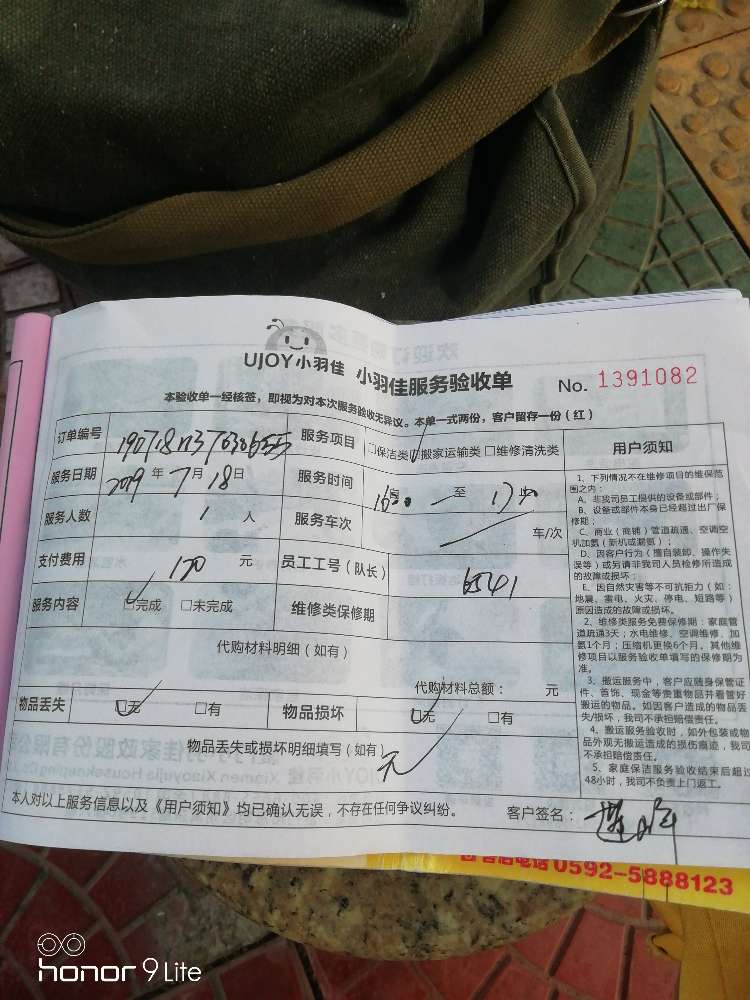 UJOY小羽佳 小羽佳服务验收单 No. 1391082
本验收单一经核签，即视为对本次服务验收无异议。本单一式两份，客户留存一份（红）
订单编号 服务项目 □保洁类 □搬家运输类 □维修清洗类
服务日期 2019 年 7 月 18 日 服务时间 至
服务人数 1 人 服务车次 车/次
支付费用 120 元 员工工号（队长） 6541
服务内容 □完成 □未完成 维修类保修期
代购材料明细（如有）
代购材料总额： 元
物品丢失 □无 □有 物品损坏 □无 □有
物品丢失或损坏明细填写（如有） 无
本人对以上服务信息以及《用户须知》均已确认无误，不存在任何争议纠纷。 客户签名：
用户须知
1、下列情况不在维修项目的维保范
围之内：
A、非我司员工提供的设备或部件；
B、设备或部件本身已经超过出厂保
修期；
C、商业（商铺）管道疏通、空调空
机加氟（新机或漏氟）；
D、因客户行为（擅自装卸、操作失
误等）或另请非我司人员检修所造成
的故障或损坏；
E、因自然灾害等不可抗拒力（如：
地震、雷电、火灾、停电、短路等）
原因造成的故障或损坏。
2、维修类服务免费保修期：家庭管
道疏通3天；水电维修、空调维修、加
氟1个月；压缩机更换6个月。其他维
修项目以服务验收单填写的保修期为
准。
3、搬运服务中，客户应随身保管证
件、首饰、现金等贵重物品并看管好
搬运的物品。如因客户造成的物品丢
失/损坏，我司不承担赔偿责任。
4、搬运服务验收时，如外包装或物
品外观无搬运造成的损伤痕迹，我司
不承担赔偿责任。
5、家庭保洁服务验收结束后超过
48小时，我司不负责上门返工。
0592-5888123
honor 9 Lite